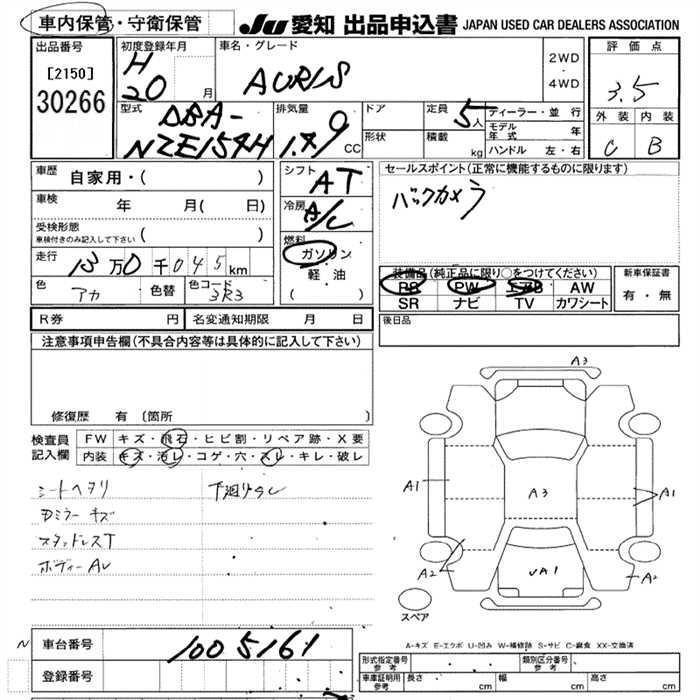 車内保管・守衛保管
JU 愛知 出品申込書 JAPAN USED CAR DEALERS ASSOCIATION
出品番号
[2150]
30266
初度登録年月
H
20 月
車名・グレード
AURIS
2WD
・
4WD
評価点
3.5
外装 内装
C B
型式
DBA-
NZE154H
排気量
CC
ドア
形状
定員
5人
積載
kg
ディーラー・並行
モデル年式 年
ハンドル 左・右
車歴 自家用・( )
車検 年 月( 日)
受検形態
車検付きのみ記入して下さい ( )
走行 13万0千045km
色 アカ 色替 色コード 3R3
シフト AT
冷房 A/C
燃料
ガソリン
軽油
( )
セールスポイント(正常に機能するものに限ります)
バックカメラ
装備品(純正品に限り○をつけてください)
PS PW エアB AW
SR ナビ TV カワシート
新車保証書
有・無
R券 円 名変通知期限 月 日
後日品
注意事項申告欄(不具合内容等は具体的に記入して下さい)
修復歴 有〔箇所 〕
検査員記入欄
FW キズ・飛石・ヒビ割・リペア跡・X要
内装 キズ・汚レ・コゲ・穴・スレ・キレ・破レ
シートヘタリ
下廻りサビ
Dミラーキズ
スタッドレスT
A3
A1
A3
A1
A2
A2
スペア
A-キズ E-エクボ U-凹み W-補修跡 S-サビ C-腐食 XX-交換済
N 車台番号 1005161
登録番号
形式指定番号 参考
類別区分番号 参考
車庫証明用 参考 長さ cm 幅 cm 高さ cm